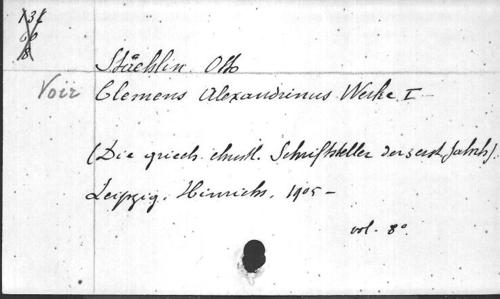 Stæhlin. Otto
Voir Clemens Alexandrinus Werke I
(Die griech. christl. Schriftsteller der 3 erst Jahrh).
Leipzig. Hinrichs. 1905 –
vol. 8°.